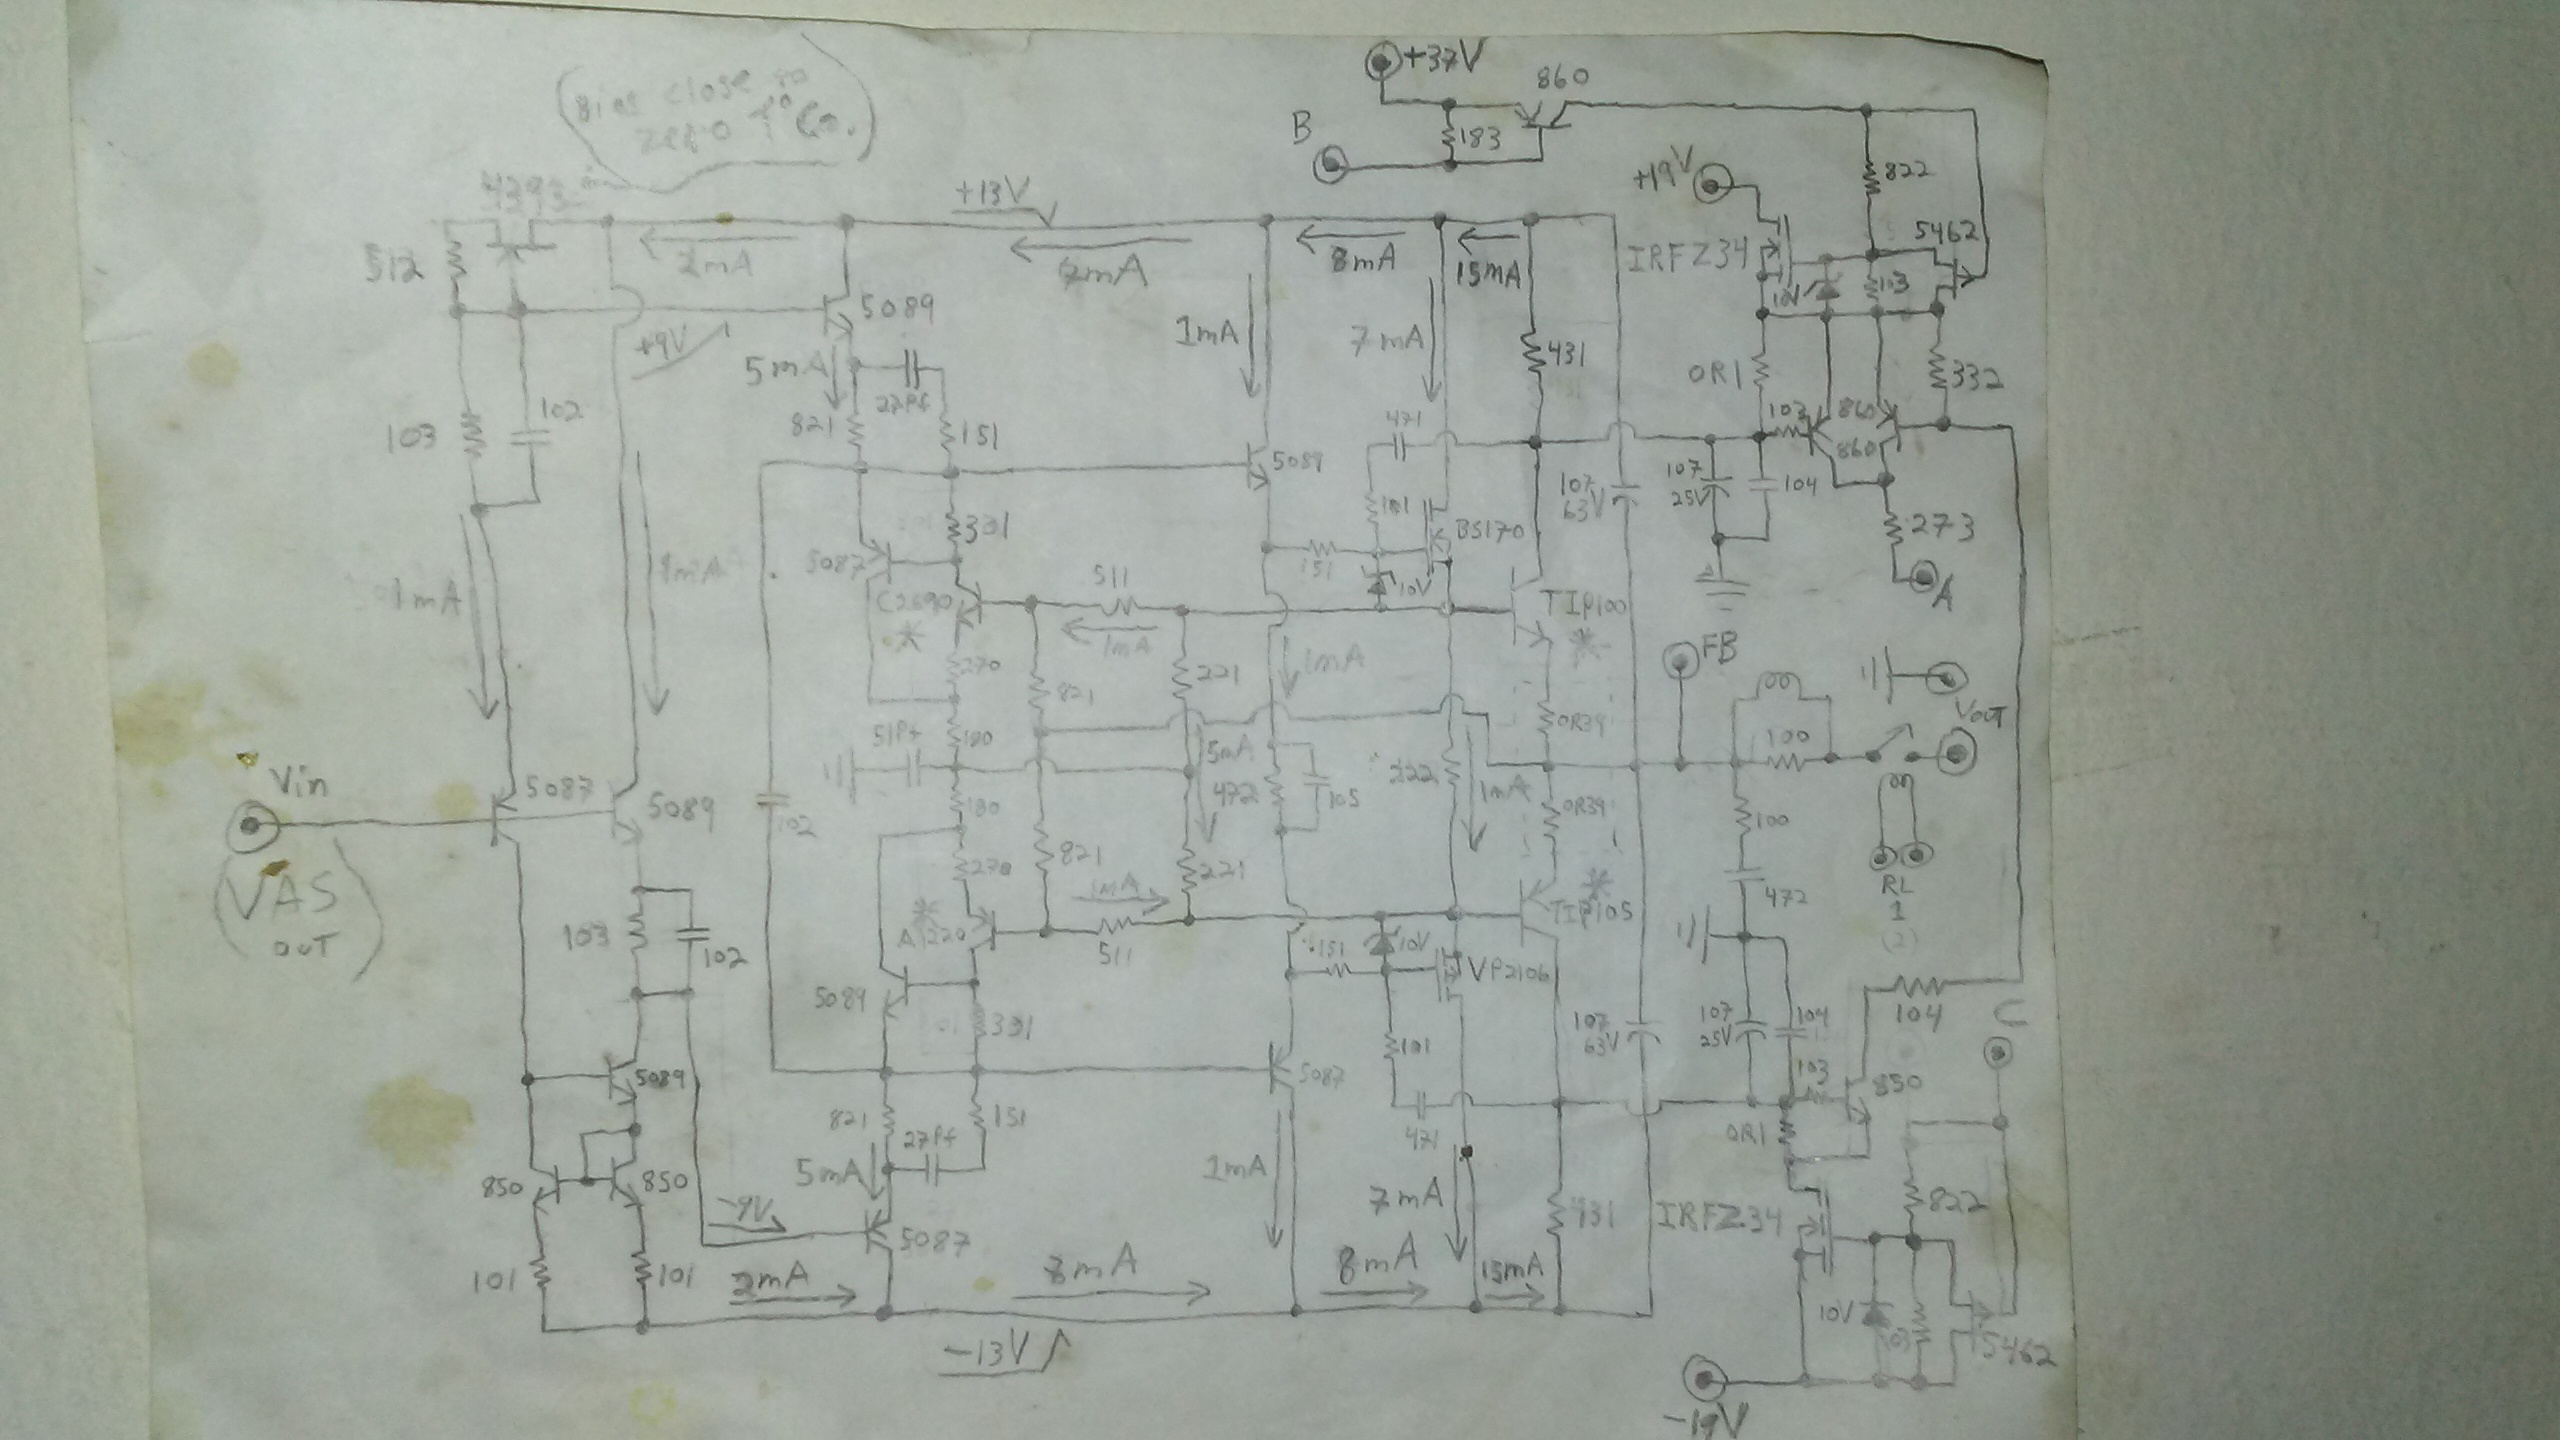 (Bias close to
zero T° Co.)
+37V
860
B
183
822
+19V
IRFZ34
5462
10V
103
4393
+13V
512
2mA
8mA
15mA
5089
+9V
5mA
1mA
7mA
431
0R1
332
103
102
27Pf
821
151
471
5089
103
860
860
107
63V
107
25V
104
273
A
331
5087
101
BS170
151
10V
C2690
*
511
1mA
TIP100
*
1mA
1mA
270
821
221
1mA
FB
0R39
Vout
51Pf
180
5mA
472
105
222
1mA
100
Vin
5087
5089
102
180
0R39
100
(VAS
OUT)
270
821
1mA
221
*
RL
1
(2)
472
*
A1220
511
TIP105
103
102
151
10V
VP2106
5089
331
101
107
63V
107
25V
104
104
C
5089
5087
103
850
821
27Pf
151
471
0R1
850
850
5mA
1mA
7mA
431
IRFZ34
822
-9V
5087
101
101
2mA
8mA
8mA
15mA
10V
103
5462
-13V
-19V